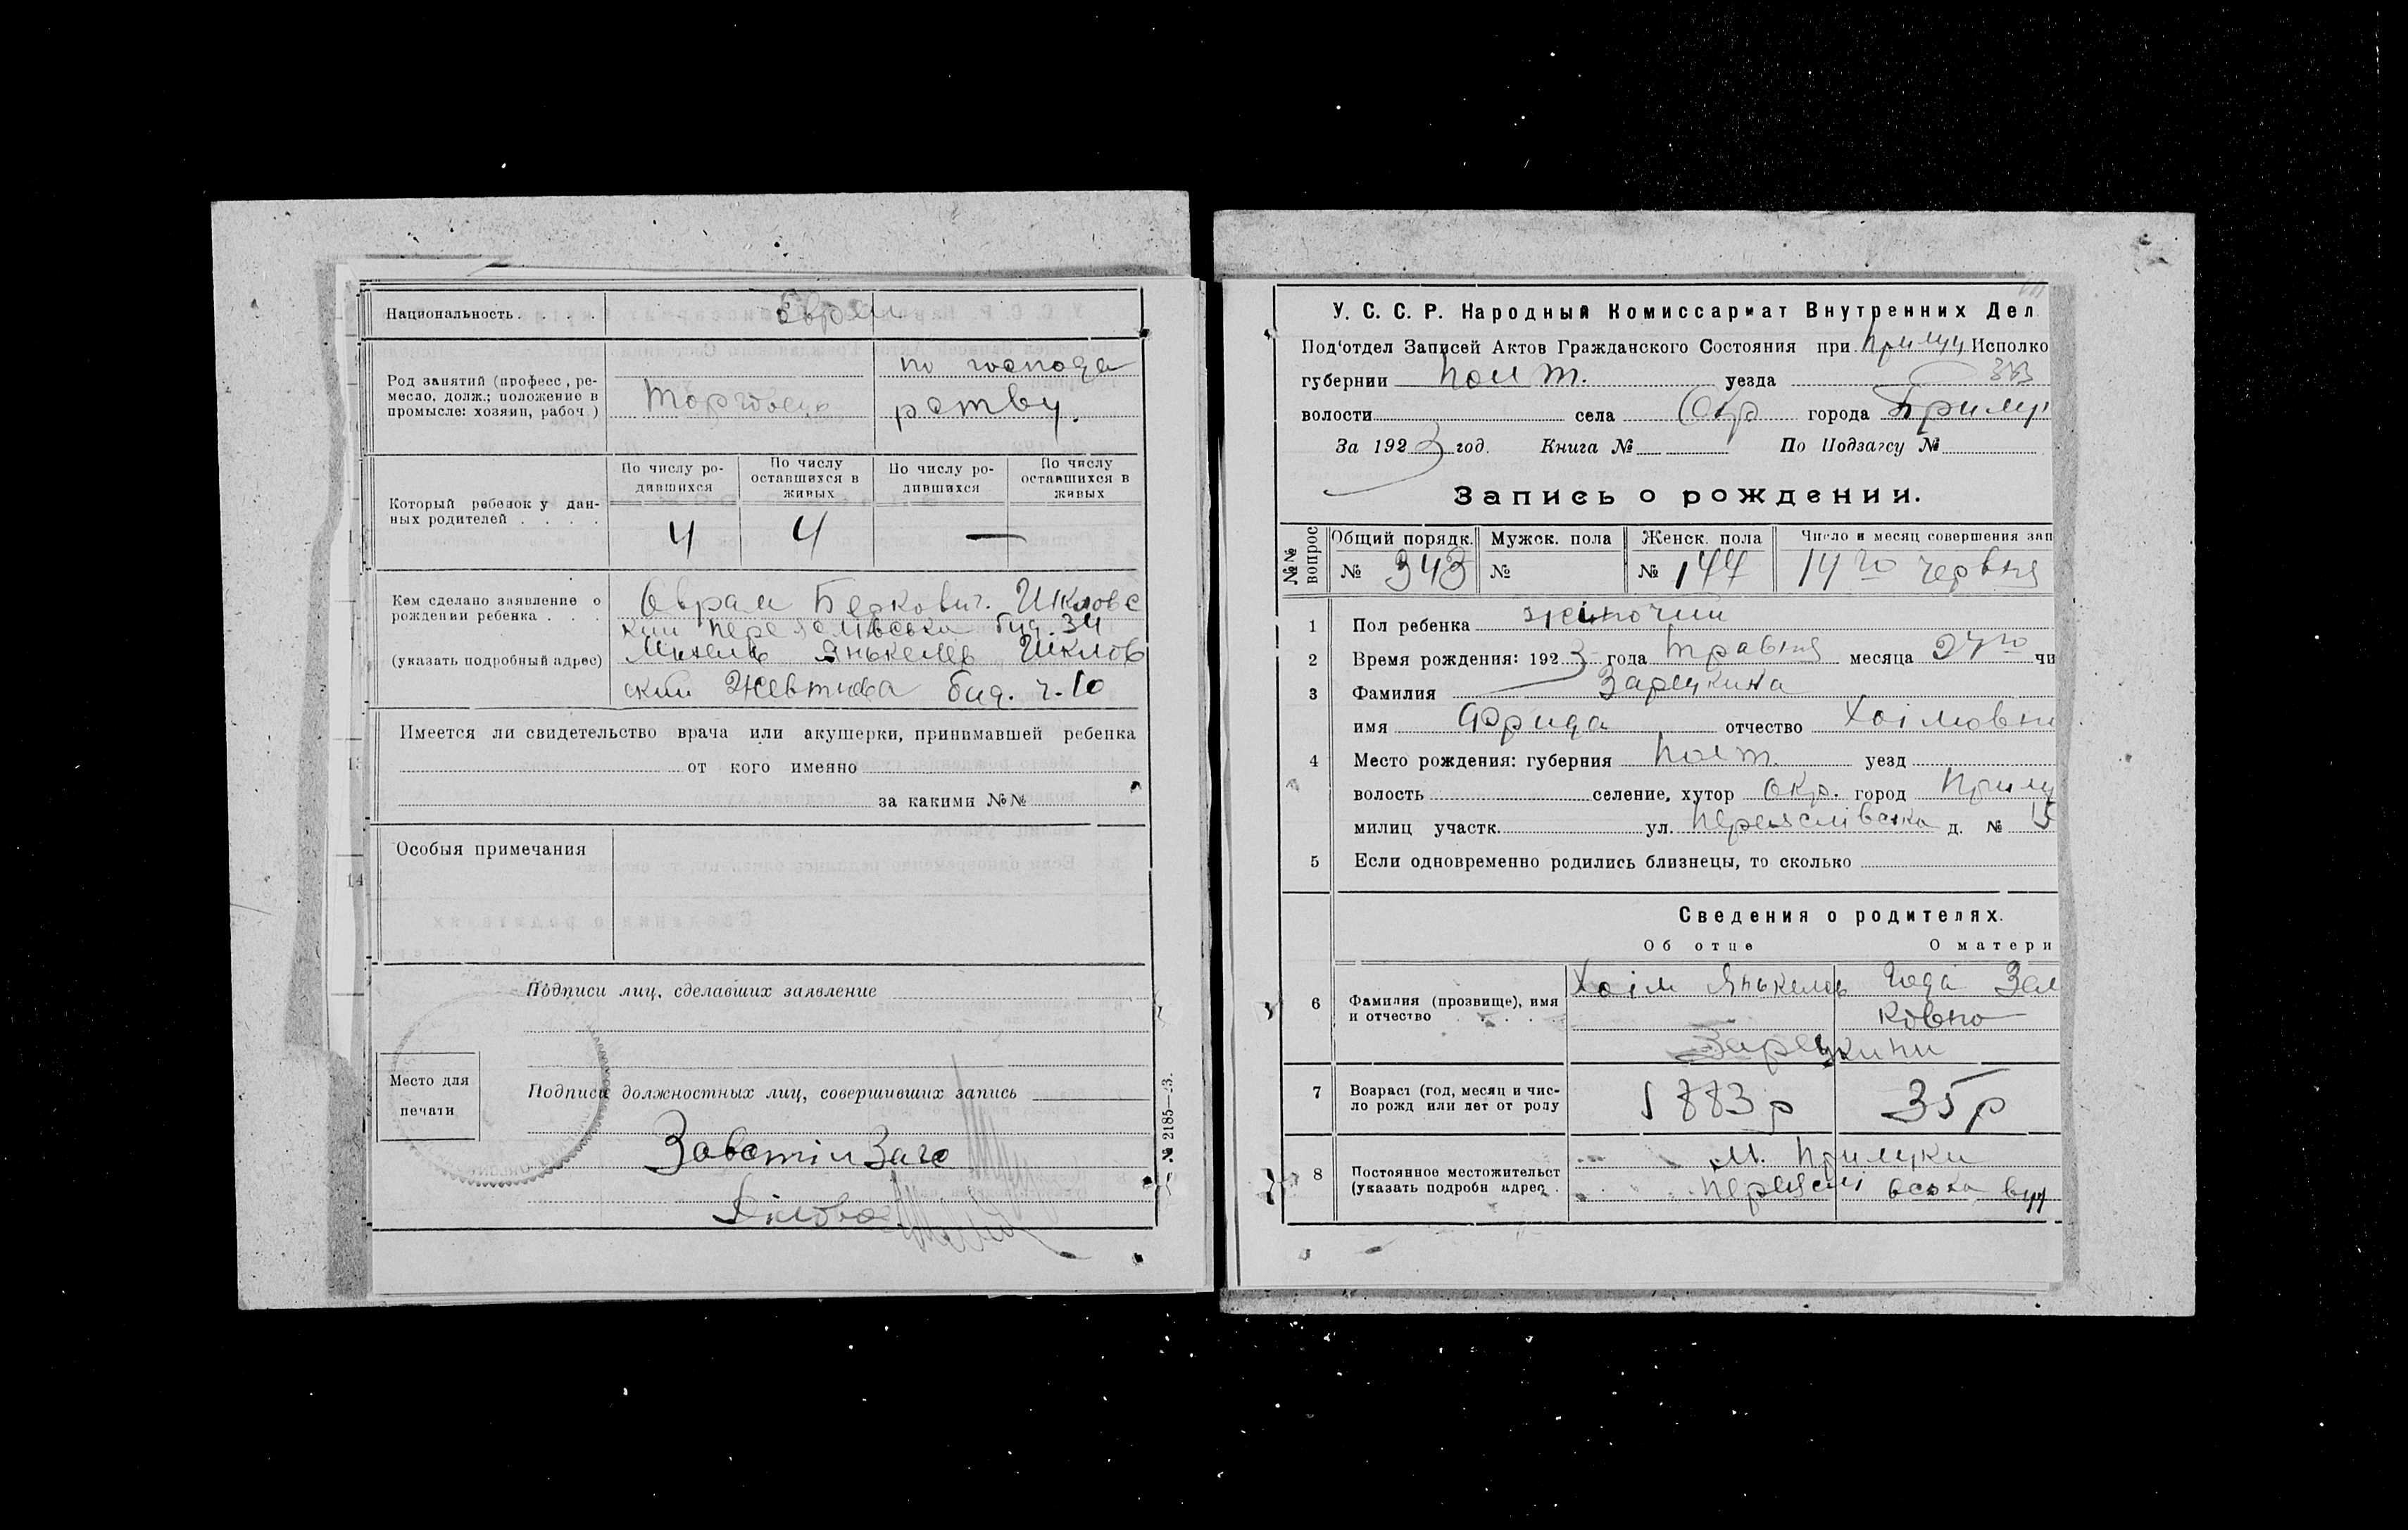 Национальность. . . . . Евреи
Род занятий (професс, ре-
месло, долж.; положение в
промысле: хозяин, рабоч )
Торговець
по господа
рству.
Который ребенок у дан-
ных родителей . . . .
По числу ро-
дившихся
По числу
оставшихся в
живых
По числу ро-
дившихся
По числу
оставшихся в
живых
4 4 —
Кем сделано заявление о
рождении ребенка . . .
(указать подробный адрес)
Оврам Беркович. Шкловс
кий Переяслівська буд. 34
Янькелев Шклов
ский буд. ч. 10
Имеется ли свидетельство врача или акушерки, принимавшей ребенка
от кого именно
за какими №№
Особыя примечания
Подписи лиц, сделавших заявление
Место для
печати
Подписи должностных лиц, совершивших запись
Діловод
№ 2185—23.
У. С. С. Р. Народный Комиссариат Внутренних Дел
Под'отдел Записей Актов Гражданского Состояния при Прилуц Исполко
губернии Полт. уезда 343
волости села Окр города Прилу
За 1923 год. Книга № По Подзагсу №
Запись о рождении.
№№
вопрос
Общий порядк.
№ 343
Мужск. пола
№
Женск. пола
№ 144
Число и месяц совершения зап
14го червня
1 Пол ребенка жіночий
2 Время рождения: 1923 года травня месяца 24го чи
3 Фамилия Зарецкина
имя Фрида отчество Хаімовни
4 Место рождения: губерния Полт. уезд
волость селение, хутор Окр. город Прилу
милиц участк. ул. Переяслівська д. № 15
5 Если одновременно родились близнецы, то сколько
Сведения о родителях.
Об отце О матери
6 Фамилия (прозвище), имя
и отчество . . . .
Хаім Янькелев
Зал
ковно
Зарецкини
7 Возраст (год, месяц и чис-
ло рожд или лет от роду
1883 р 35 р
8 Постоянное местожительст
(указать подробн адрес .
м. Прилуки
Переяслівська вул